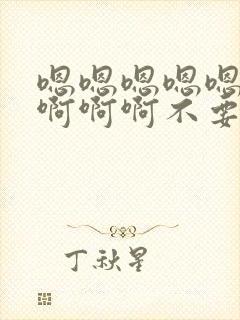 嗯嗯嗯嗯嗯
啊啊啊不要
丁秋星